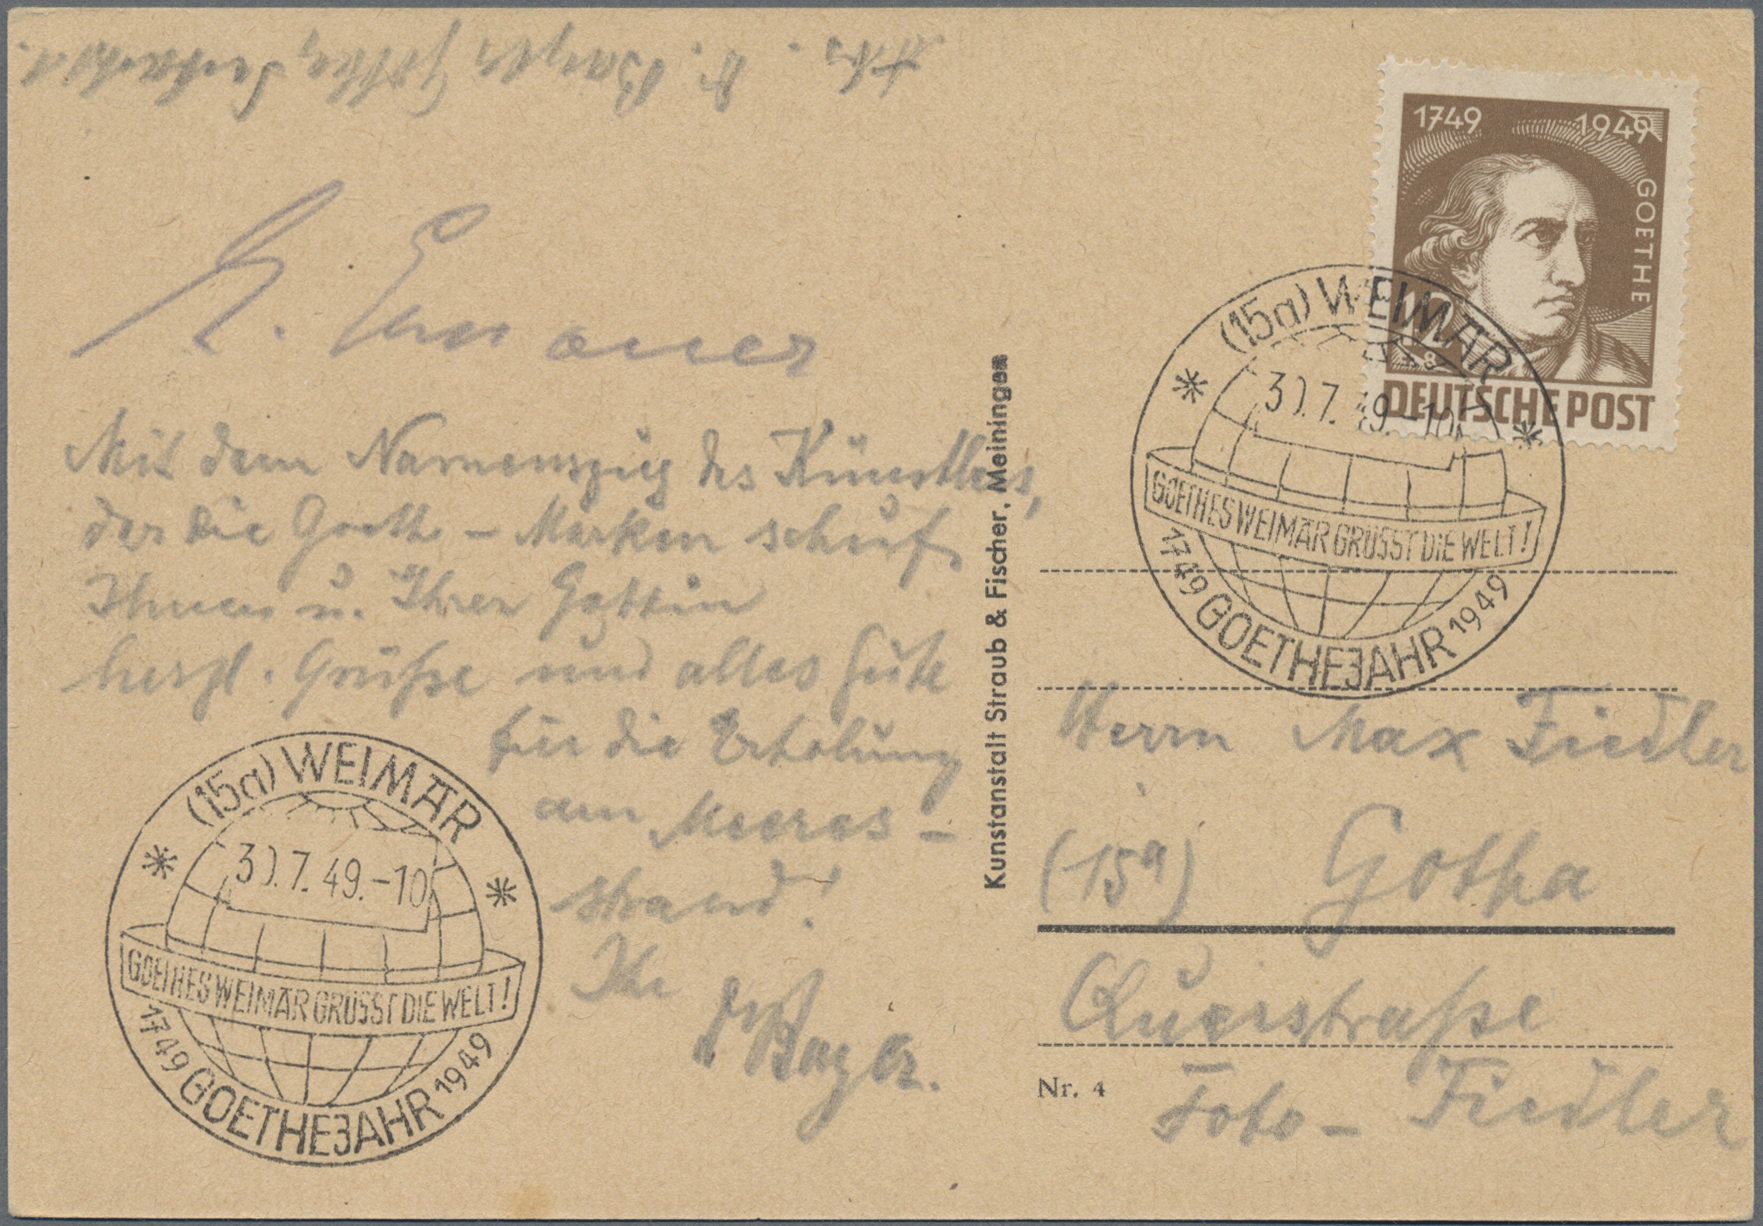 Abs. Dr. Bayer, Gotha,
1749 1949
GOETHE
12
+ 8
DEUTSCHE POST
(15a) WEIMAR
30.7.49.-10
GOETHES WEIMAR GRÜSST DIE WELT!
1749 GOETHEJAHR 1949
Mit dem Namenszug des Künstlers,
der die Goethe-Marken schuf,
Ihnen u. Ihrer Gattin
herzl. Grüße und alles Gute
für die Erholung
am Meeres-
strand!
Ihr
Dr Bayer.
(15a) WEIMAR
30.7.49.-10
GOETHES WEIMAR GRÜSST DIE WELT!
1749 GOETHEJAHR 1949
Kunstanstalt Straub & Fischer, Meiningen
Herrn Max Fiedler
(15a) Gotha
Querstraße
Foto-Fiedler
Nr. 4